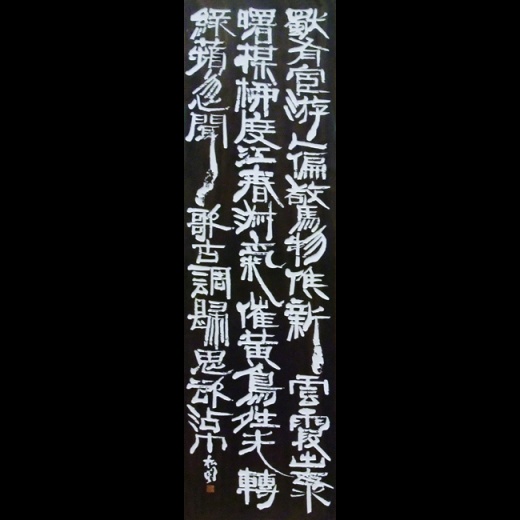 獨有宦游人偏驚物候新雲霞出海
曙楳柳度江春淑氣催黄鳥晴光轉
綠蘋忽聞歌古調歸思欲沾巾